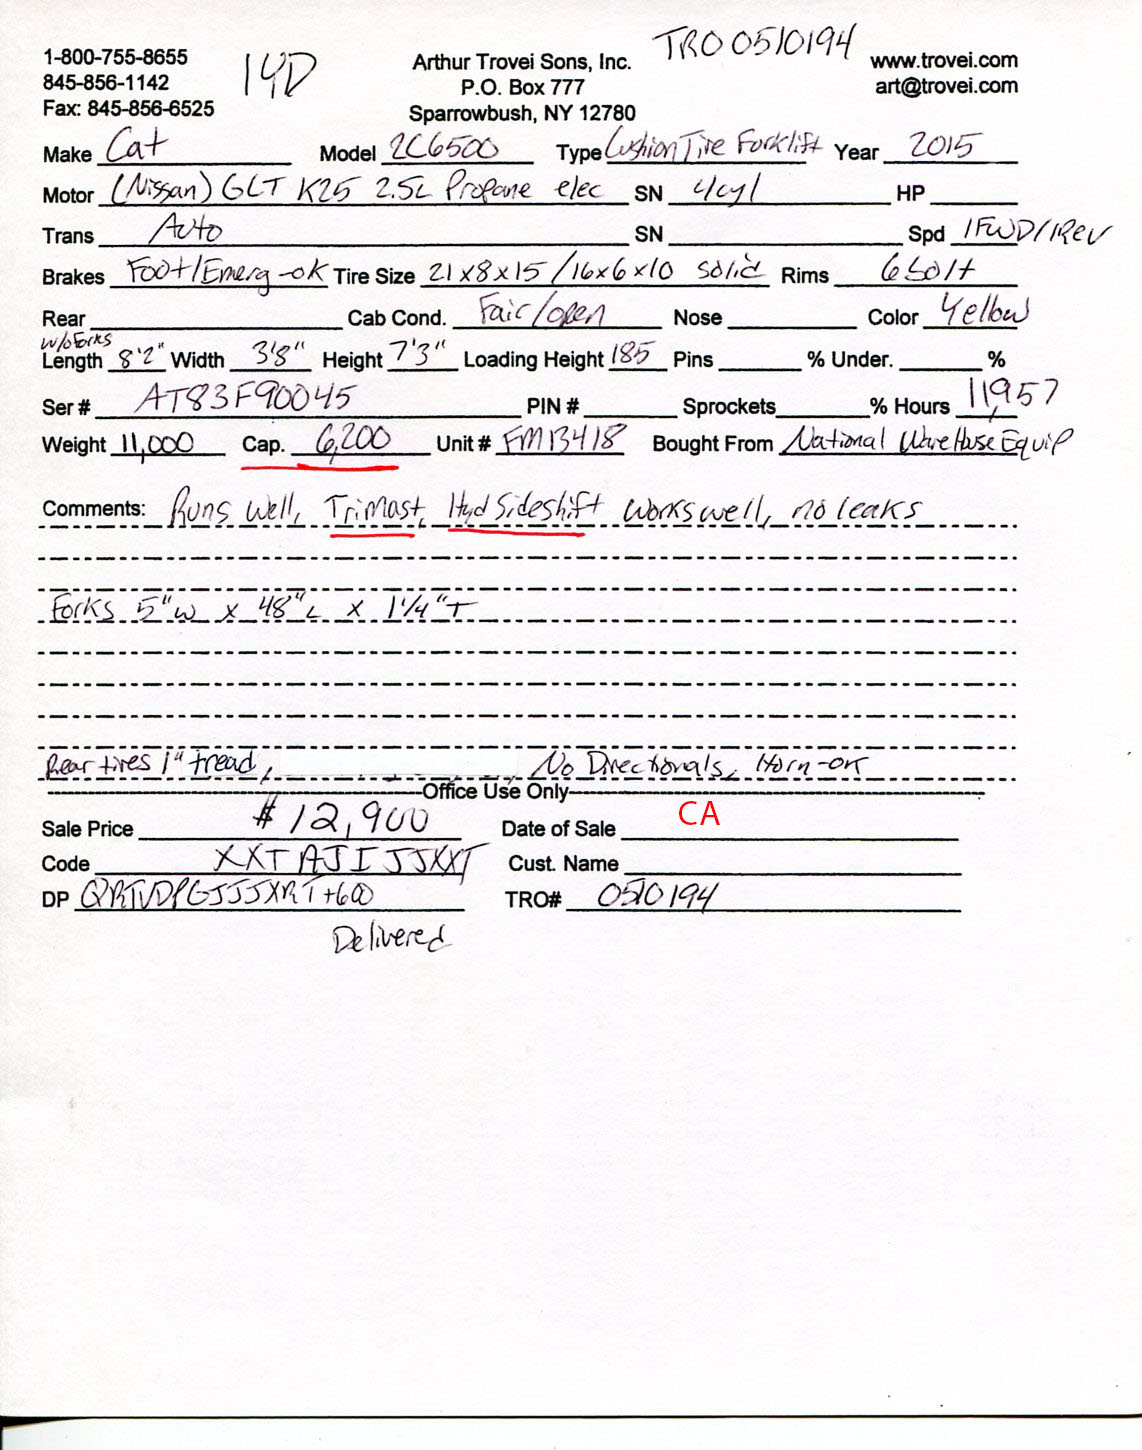 1-800-755-8655 14D Arthur Trovei Sons, Inc. TRO 0510194 www.trovei.com
845-856-1142 P.O. Box 777 art@trovei.com
Fax: 845-856-6525 Sparrowbush, NY 12780
Make Cat Model 2C6500 Type Cushion Tire Forklift Year 2015
Motor (Nissan) GCT K25 2.5L Propane elec SN 4cyl HP
Trans Auto SN Spd 1FWD/1Rev
Brakes Foot/Emerg-ok Tire Size 21x8x15 /16x6x10 solid Rims 6 bolt
Rear Cab Cond. Fair/open Nose Color Yellow
w/o Forks
Length 8'2" Width 3'8" Height 7'3" Loading Height 185 Pins % Under. %
Ser # AT83F90045 PIN # Sprockets % Hours 11,957
Weight 11,000 Cap. 6,200 Unit # FM13418 Bought From National WareHouse Equip
Comments: Runs well, TriMast, Hyd Sideshift works well, no leaks
Forks 5"W x 48"L x 1 1/4"T
Rear tires 1" tread, No Directionals, Horn-ok
Office Use Only
Sale Price $12,900 Date of Sale CA
Code XXTAJIJJXXT Cust. Name
DP TRO# 0510194
Delivered